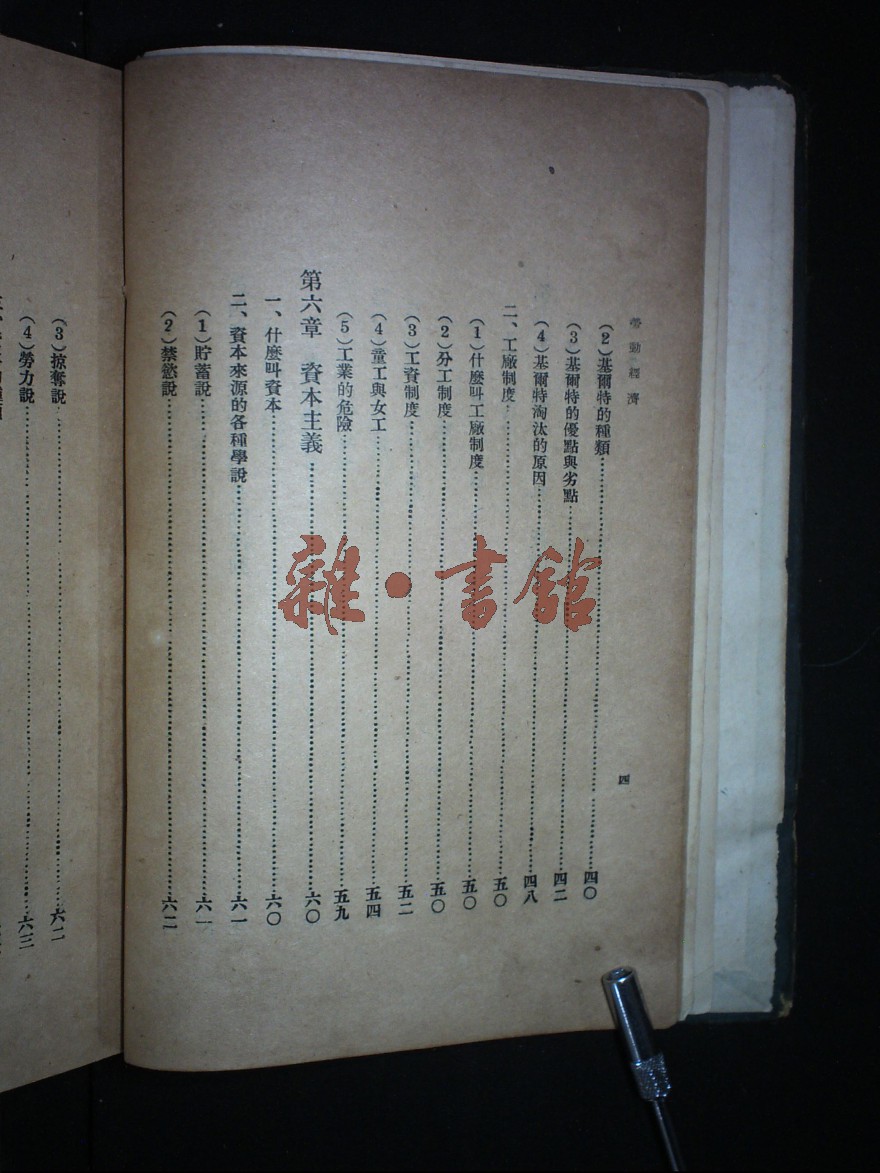 勞動經濟
四
(2)基爾特的種類……四〇
(3)基爾特的優點與劣點……四二
(4)基爾特淘汰的原因……四八
二、工廠制度……五〇
(1)什麼叫工廠制度……五〇
(2)分工制度……五〇
(3)工資制度……五二
(4)童工與女工……五四
(5)工業的危險……五九
第六章 資本主義……六〇
一、什麼叫資本……六〇
二、資本來源的各種學說……六一
(1)貯蓄說……六一
(2)禁慾說……六二
(3)掠奪說……六二
(4)勞力說……六三
雜·書館